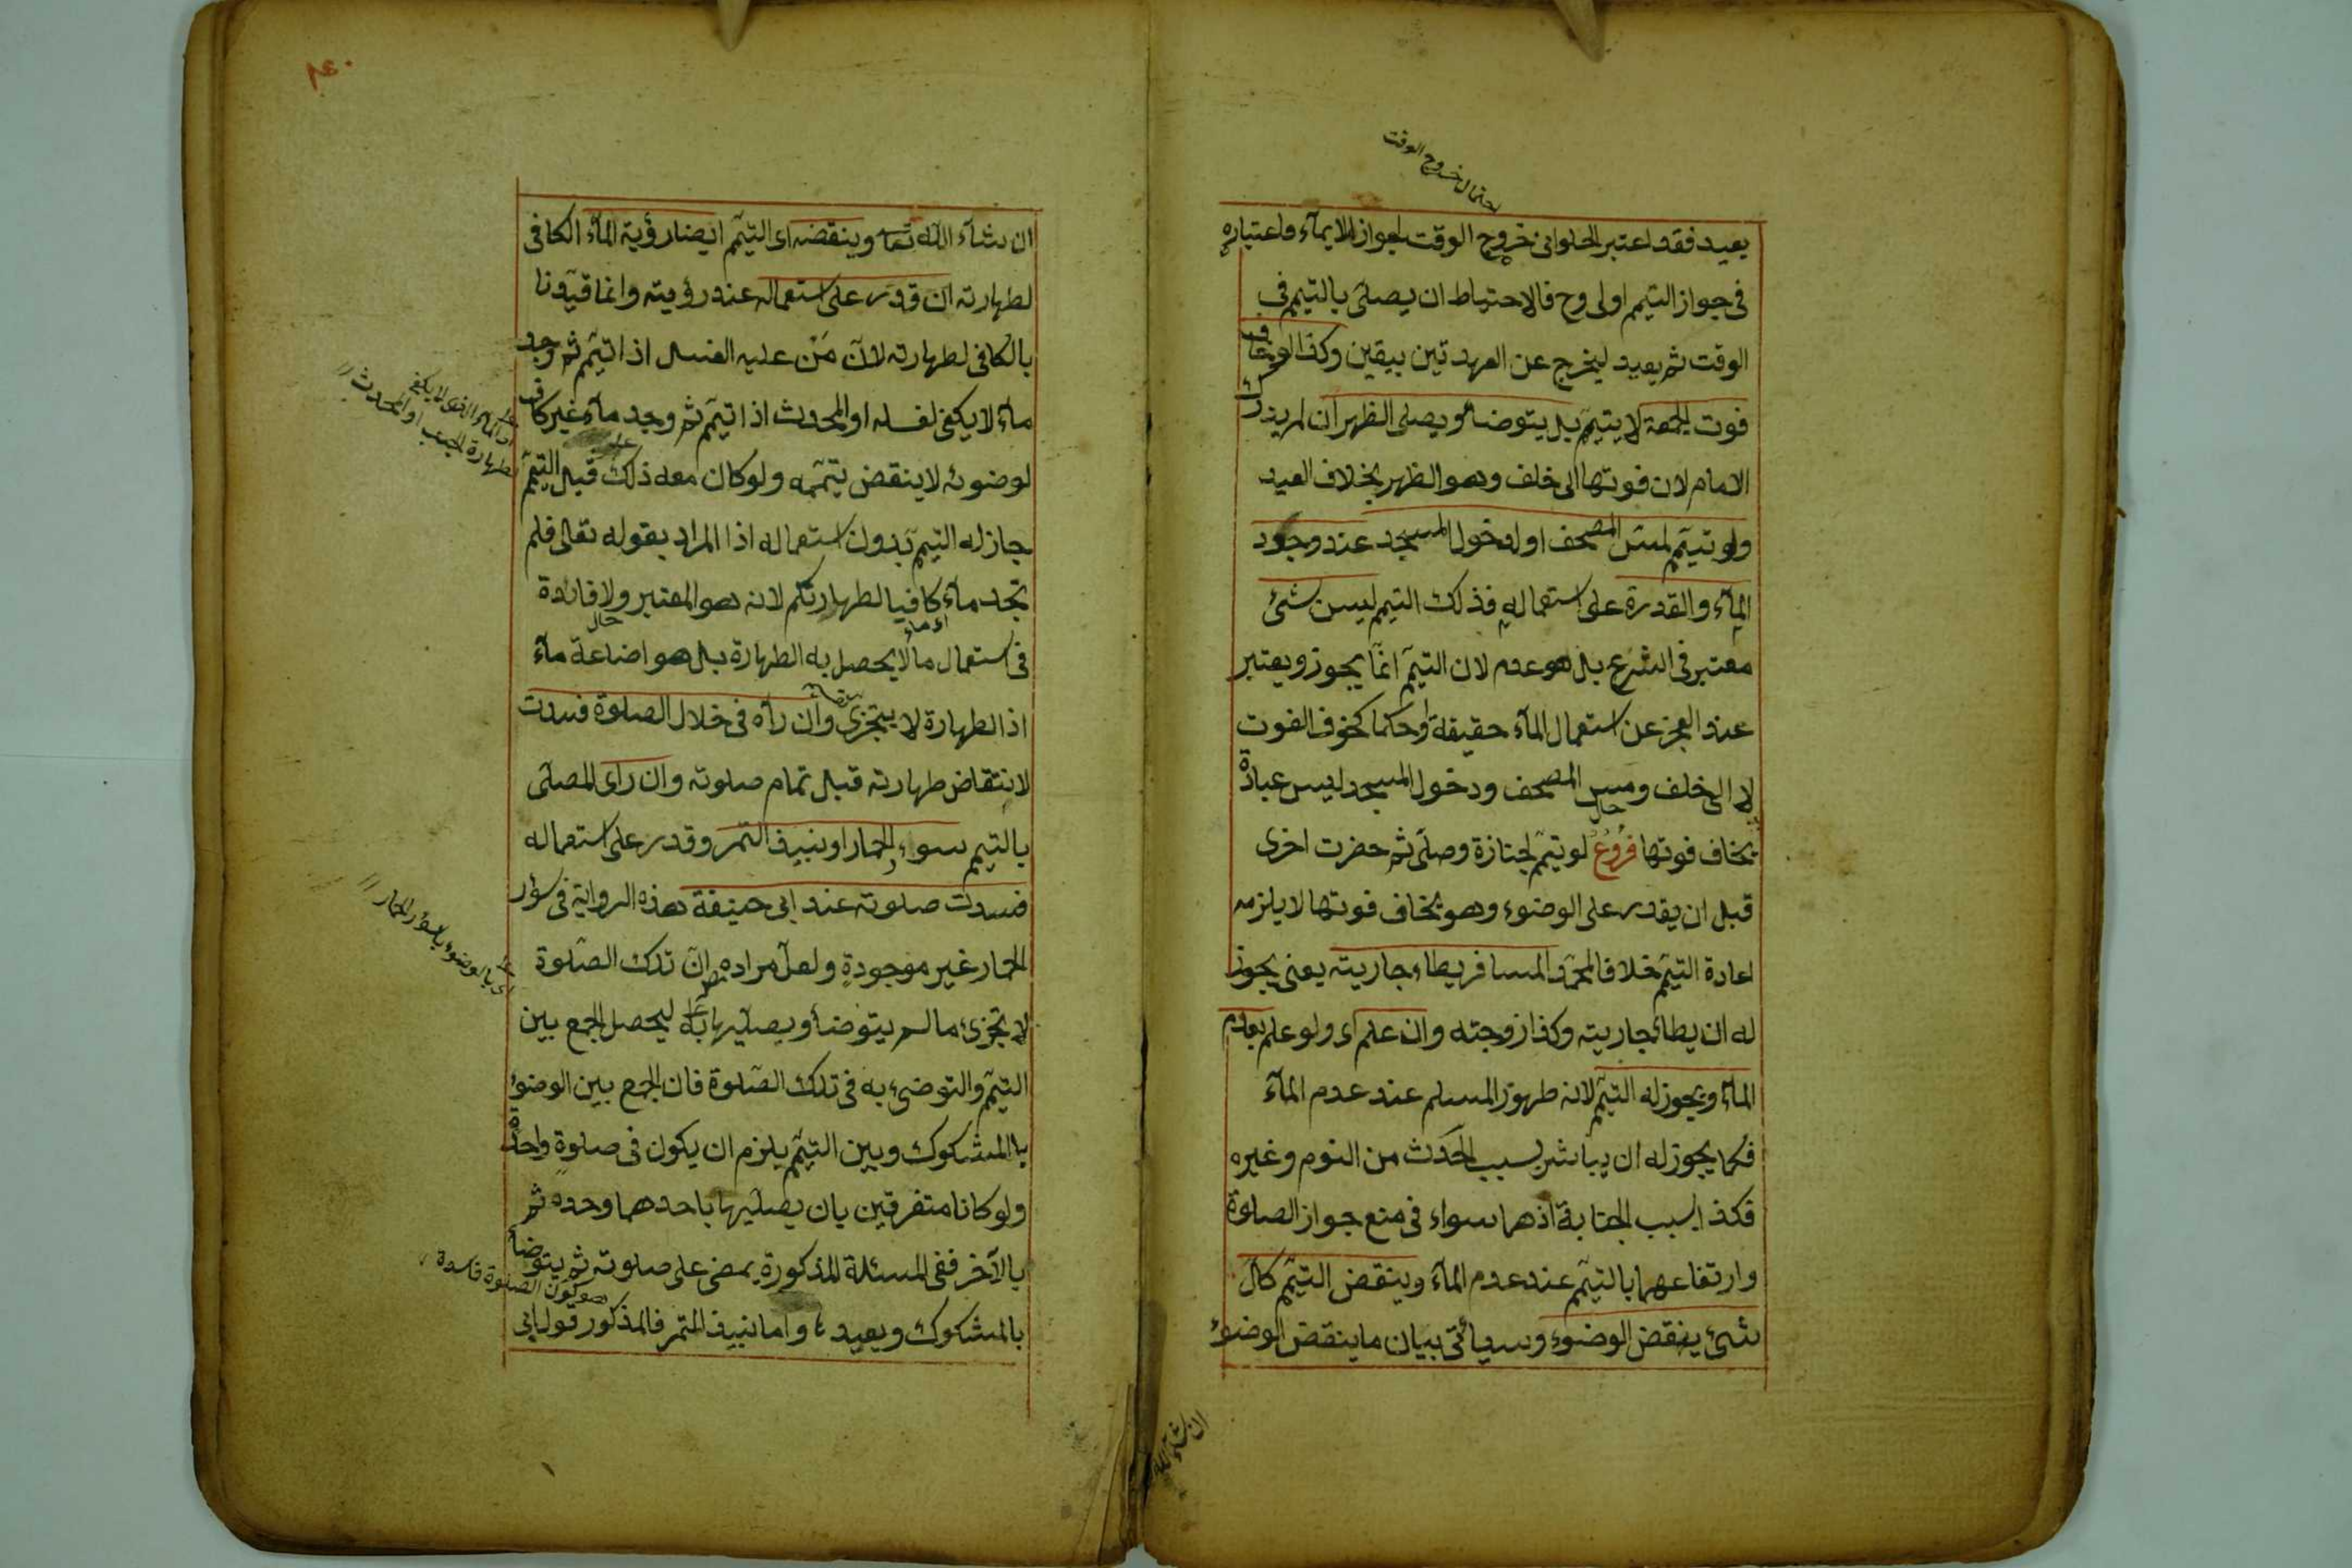 لاحتمال خروج الوقت
يعيد فقد اعتبر الحلوانى خروج الوقت لجواز الايمآء فاعتباره
فى جواز التيمم اولى وح فالاحتياط ان يصلى بالتيمم فى
الوقت ثم يعيد ليخرج عن العهدتين بيقين وكذا لو خاف
فوت الجمعة لا يتيمم بل يتوضأ ويصلى الظهر ان لم يدرك
الامام لان فوتها الى خلف وهو الظهر بخلاف العيد
ولو تيمم لمس المصحف او لدخول المسجد عند وجود
المآء والقدرة على استعماله فذلك التيمم ليس بشئ
معتبر فى الشرع بل هو عدم لان التيمم انما يجوز ويعتبر
عند العجز عن استعمال المآء حقيقة او حكما كخوف الفوت
لا الى خلف ومس المصحف ودخول المسجد ليس عبادة
يخاف فوتها فروع لو تيمم لجنازة وصلى ثم حضرت اخرى
قبل ان يقدر على الوضوء وهو يخاف فوتها لا يلزمه
اعادة التيمم خلافا لمحمد المسافر يطاء جاريته يعنى يجوز
له ان يطاء جاريته وكذا زوجته وان علم اى ولو علم بعدم
المآء ويجوز له التيمم لانه طهور المسلم عند عدم المآء
فكما يجوز له ان يباشر بسبب الحدث من النوم وغيره
فكذا بسبب الجنابة اذ هما سواء فى منع جواز الصلوة
وارتفاعهما بالتيمم عند عدم المآء وينقض التيمم كل
شئ ينقض الوضوء وسيأتى بيان ما ينقض الوضوء
ان شاء الله
ان شآء الله تعا وينقضه اى التيمم ايضا رؤية المآء الكافى
لطهارته ان قدر على استعماله عند رؤيته وانما قيدنا
بالكافى لطهارته لان من عليه الغسل اذا تيمم ثم وجد
مآء لا يكفى لغسله او المحدث اذا تيمم ثم وجد مآء غير كاف
لوضوئه لا ينقض تيممه ولو كان معه ذلك قبل التيمم
جاز له التيمم بدون استعماله اذا المراد بقوله تعالى فلم
تجد مآء كافيا لطهارتكم لانه هو المعتبر ولا فائدة
فى استعمال ما لا يحصل به الطهارة بل هو اضاعة مآء
اذ الطهارة لا يتجزى وان رآه فى خلال الصلوة فسدت
لانتقاض طهارته قبل تمام صلوته وان راى المصلى
بالتيمم سوء الحمار او نبيذ التمر وقدر على استعماله
فسدت صلوته عند ابى حنيفة هذه الرواية فى سؤر
الحمار غير موجودة ولعل مراده ان تلك الصلوة
لا تجزئ ما لم يتوضأ ويصليها به ليحصل الجمع بين
التيمم والتوضئ به فى تلك الصلوة فان الجمع بين الوضوء
با المشكوك وبين التيمم يلزم ان يكون فى صلوة واحدة
ولو كانا متفرقين بان يصليها باحدهما وحده ثم
بالآخر ففى المسئلة المذكورة يمضى على صلوته ثم يتوضأ
بالمشكوك ويعيد واما نبيذ التمر فالمذكور قول ابى
اى الماء الذى لا يكفى
لطهارة الجنب او المحدث
اى ماء
اى بالوضوء بسؤر الحمار
هو كون الصلوة فاسدة